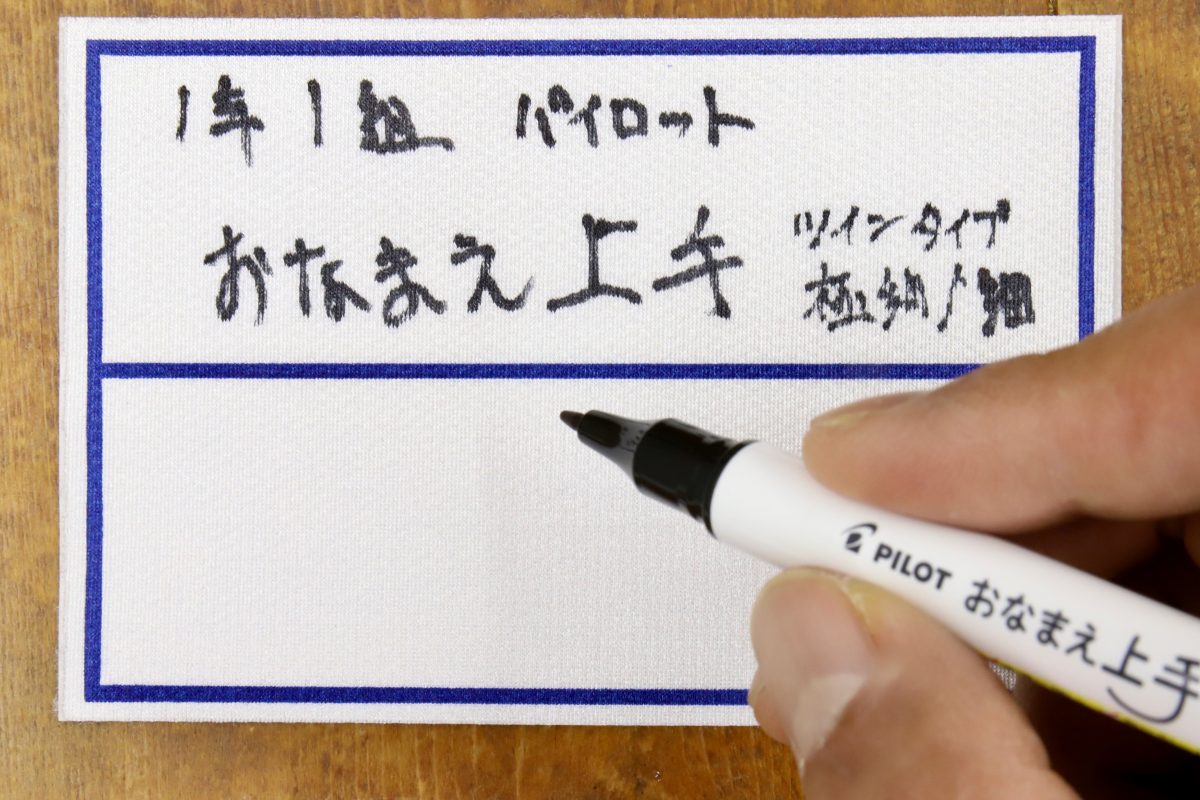 1年1組 パイロット
おなまえ上手
ツインタイプ
極細/細
PILOT おなまえ上手